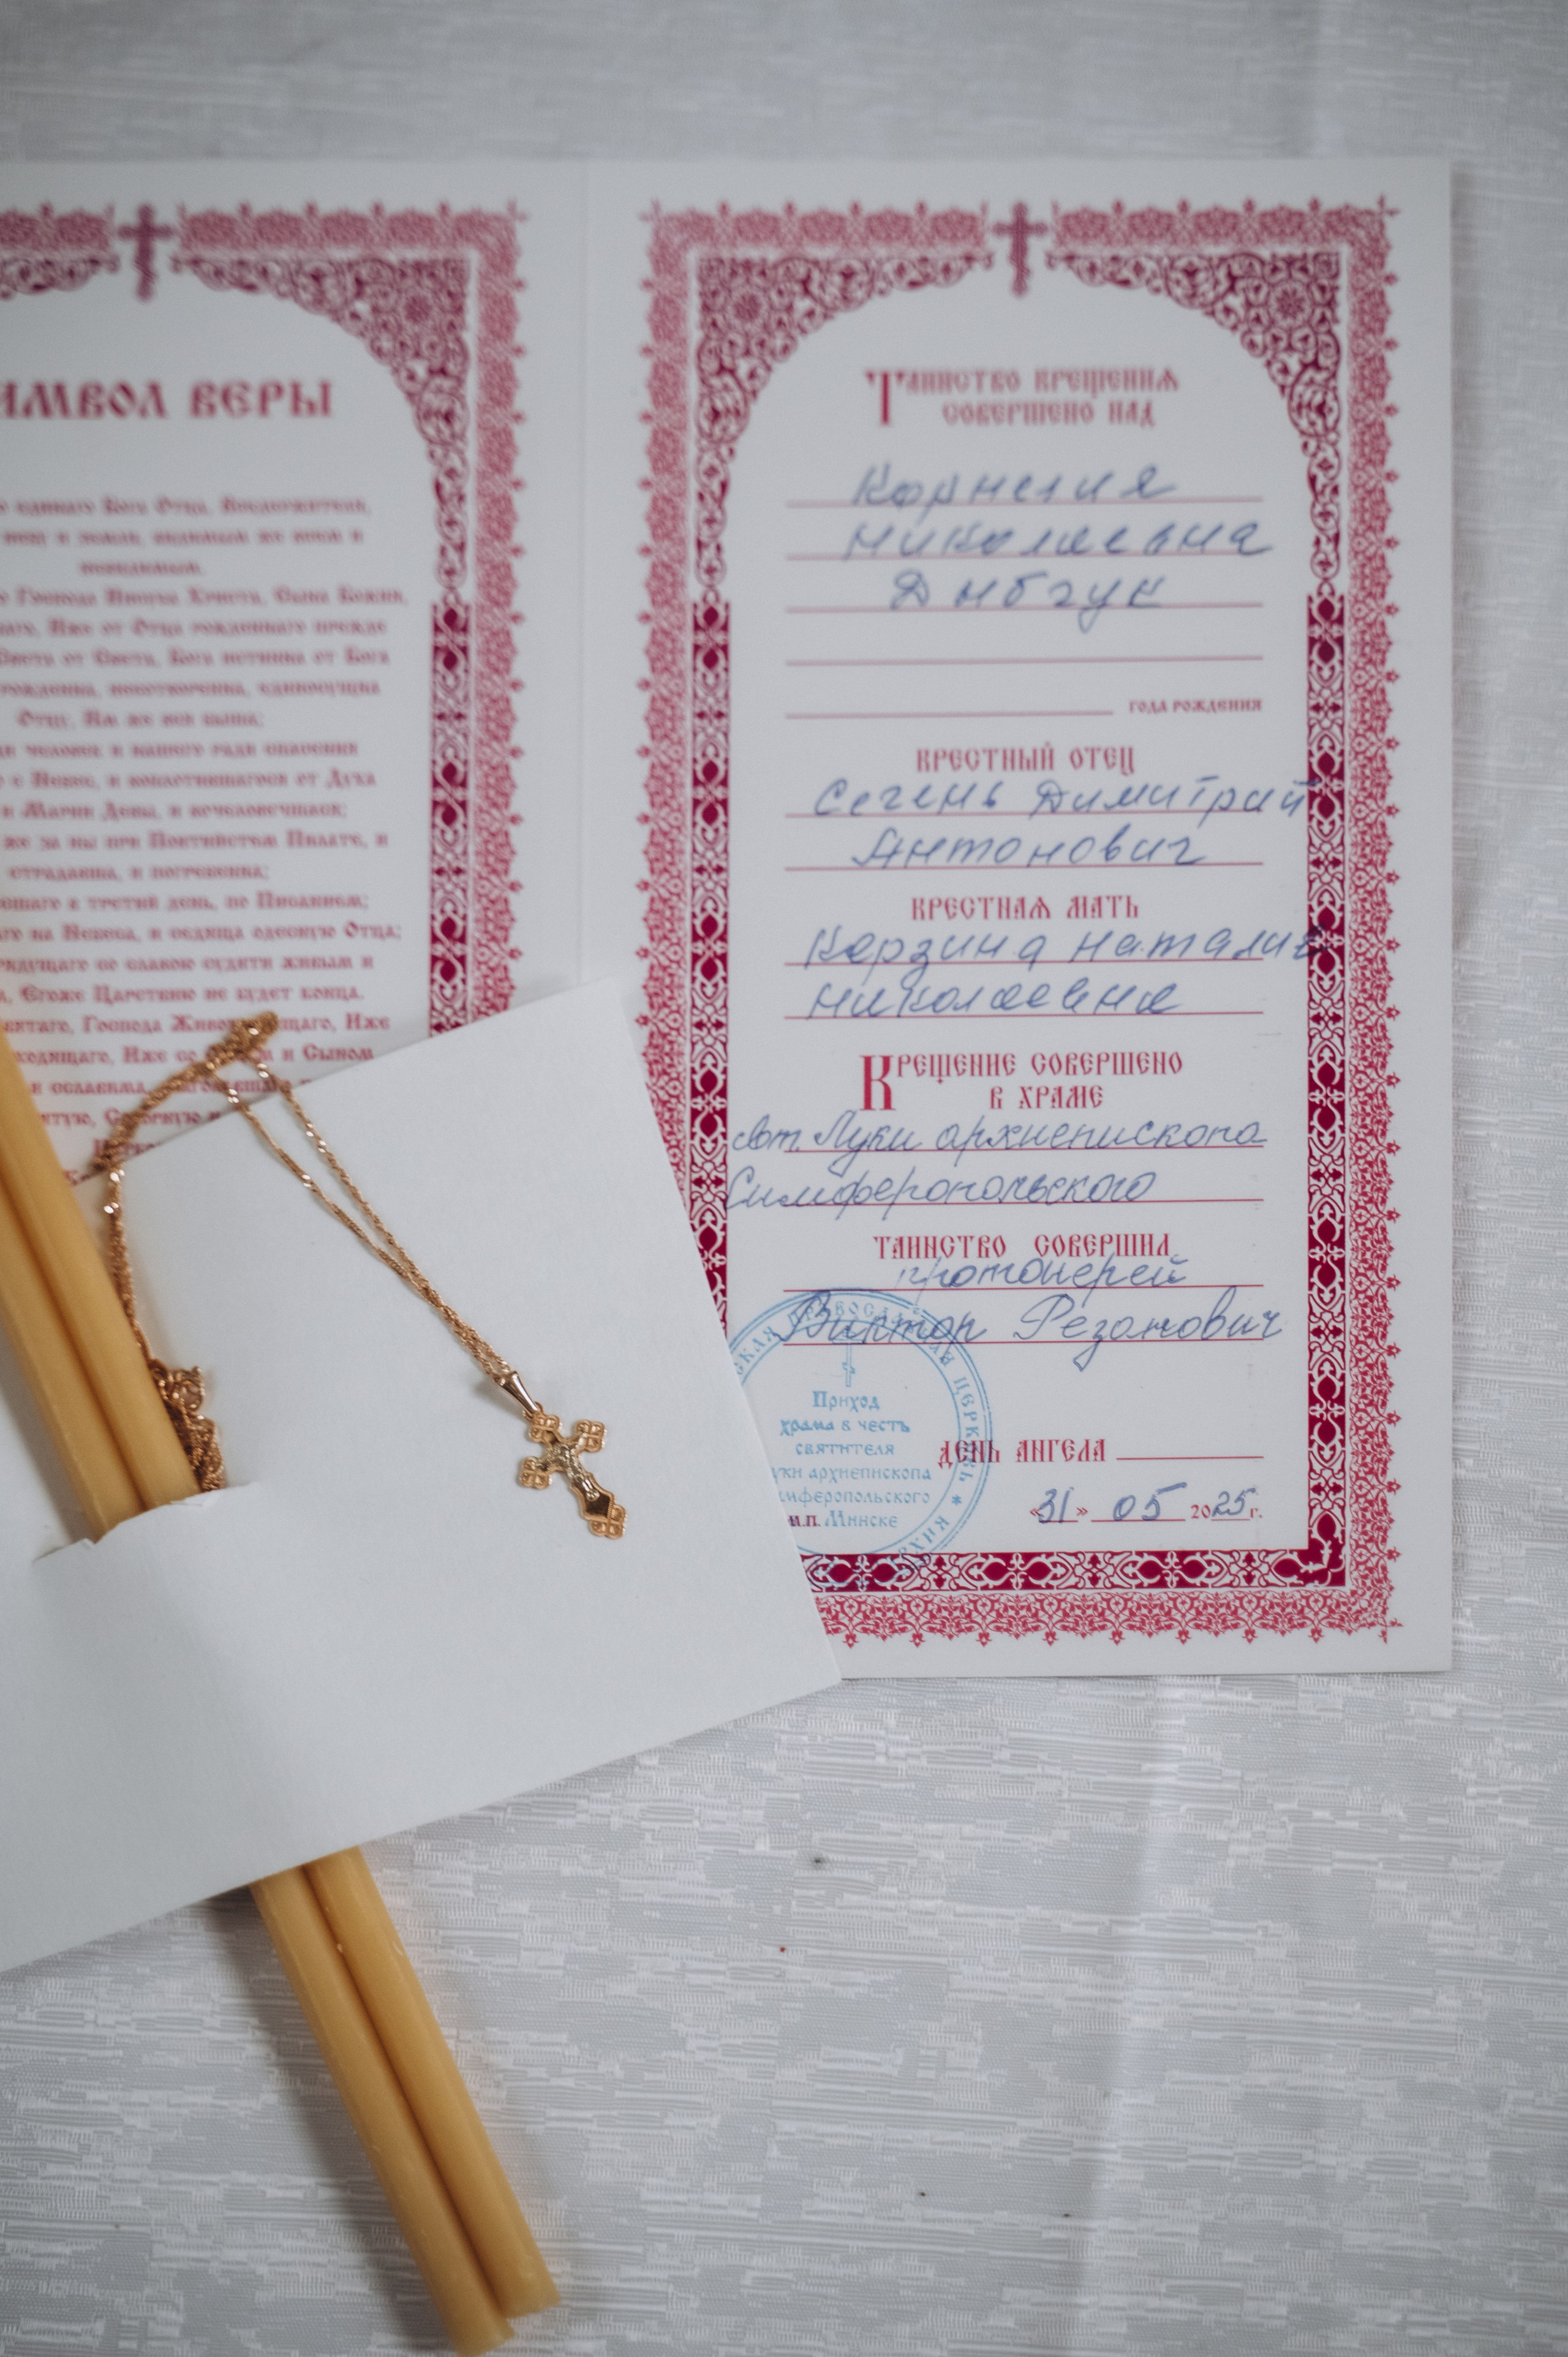 ИМВОЛ ВЕРЫ
единаго Бога Отца, Вседержителя,
небу и земли, видимым же всем и
невидимым.
Господа Иисуса Христа, Сына Божия,
Иже от Отца рожденнаго прежде
Света от Света, Бога истинна от Бога
рожденна, несотворенна, единосущна
Отцу, Им же вся быша;
человек и нашего ради спасения
с Небес, и воплотившагося от Духа
и Марии Девы, и вочеловечшася;
же за ны при Понтийстем Пилате, и
страдавша, и погребенна;
в третий день, по Писанием;
на Небеса, и седяща одесную Отца;
грядущаго со славою судити живым и
Егоже Царствию не будет конца.
Господа Иже
Иже со и Сыном
и сславима,
Таинство крещения
совершено над
Корнелия
Николаевна
года рождения
крестный отец
Сегень Димитрий
Антонович
крестная мать
Корзина Наталия
Николаевна
Крещение совершено
в храме
свт. Луки архиепископа
Симферопольского
таинство совершил
протоиерей
Виктор Резанович
Приход
храма в честь
святителя
уки архиепископа
имферопольского
м.п. Минске
ЦЕРКОВЬ
день ангела
«31» 05 2025г.